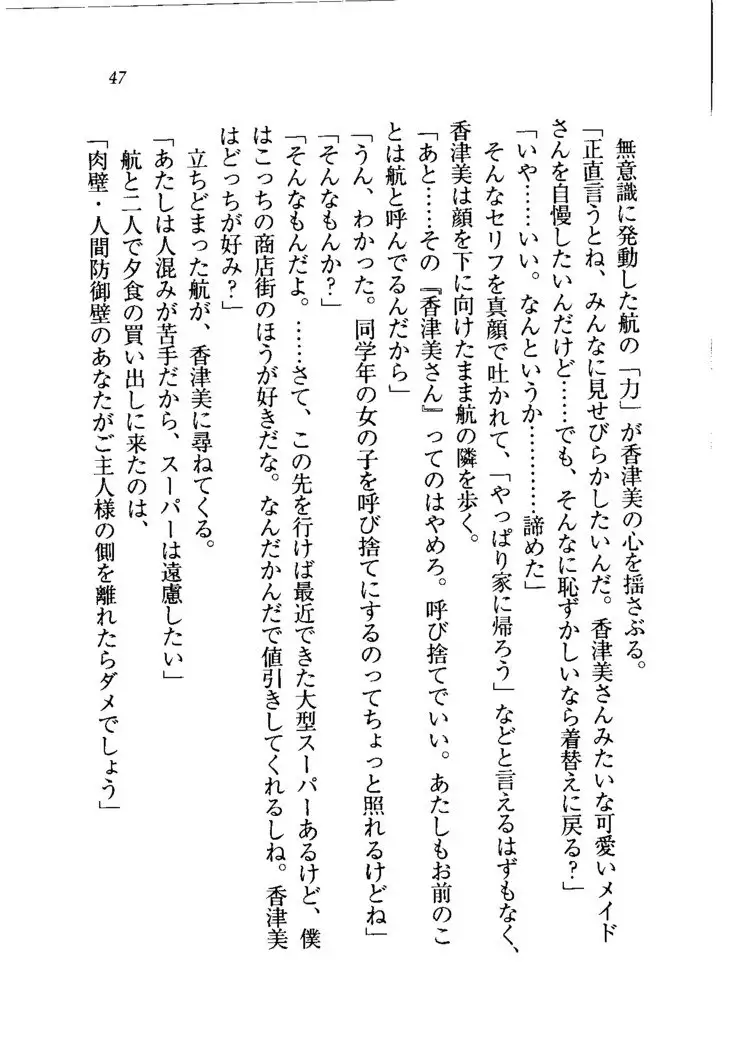 47
無意識に発動した航の「力」が香津美の心を揺さぶる。
「正直言うとね、みんなに見せびらかしたいんだ。香津美さんみたいな可愛いメイド
さんを自慢したいんだけど……でも、そんなに恥ずかしいなら着替えに戻る？」
「いや……いい。なんというか…………諦めた」
そんなセリフを真顔で吐かれて、「やっぱり家に帰ろう」などと言えるはずもなく、
香津美は顔を下に向けたまま航の隣を歩く。
「あと……その『香津美さん』ってのはやめろ。呼び捨てでいい。あたしもお前のこ
とは航と呼んでるんだから」
「うん、わかった。同学年の女の子を呼び捨てにするのってちょっと照れるけどね」
「そんなもんか？」
「そんなもんだよ。……さて、この先を行けば最近できた大型スーパーあるけど、僕
はこっちの商店街のほうが好きだな。なんだかんだで値引きしてくれるしね。香津美
はどっちが好み？」
立ちどまった航が、香津美に尋ねてくる。
「あたしは人混みが苦手だから、スーパーは遠慮したい」
航と二人で夕食の買い出しに来たのは、
「肉壁・人間防御壁のあなたがご主人様の側を離れたらダメでしょう」